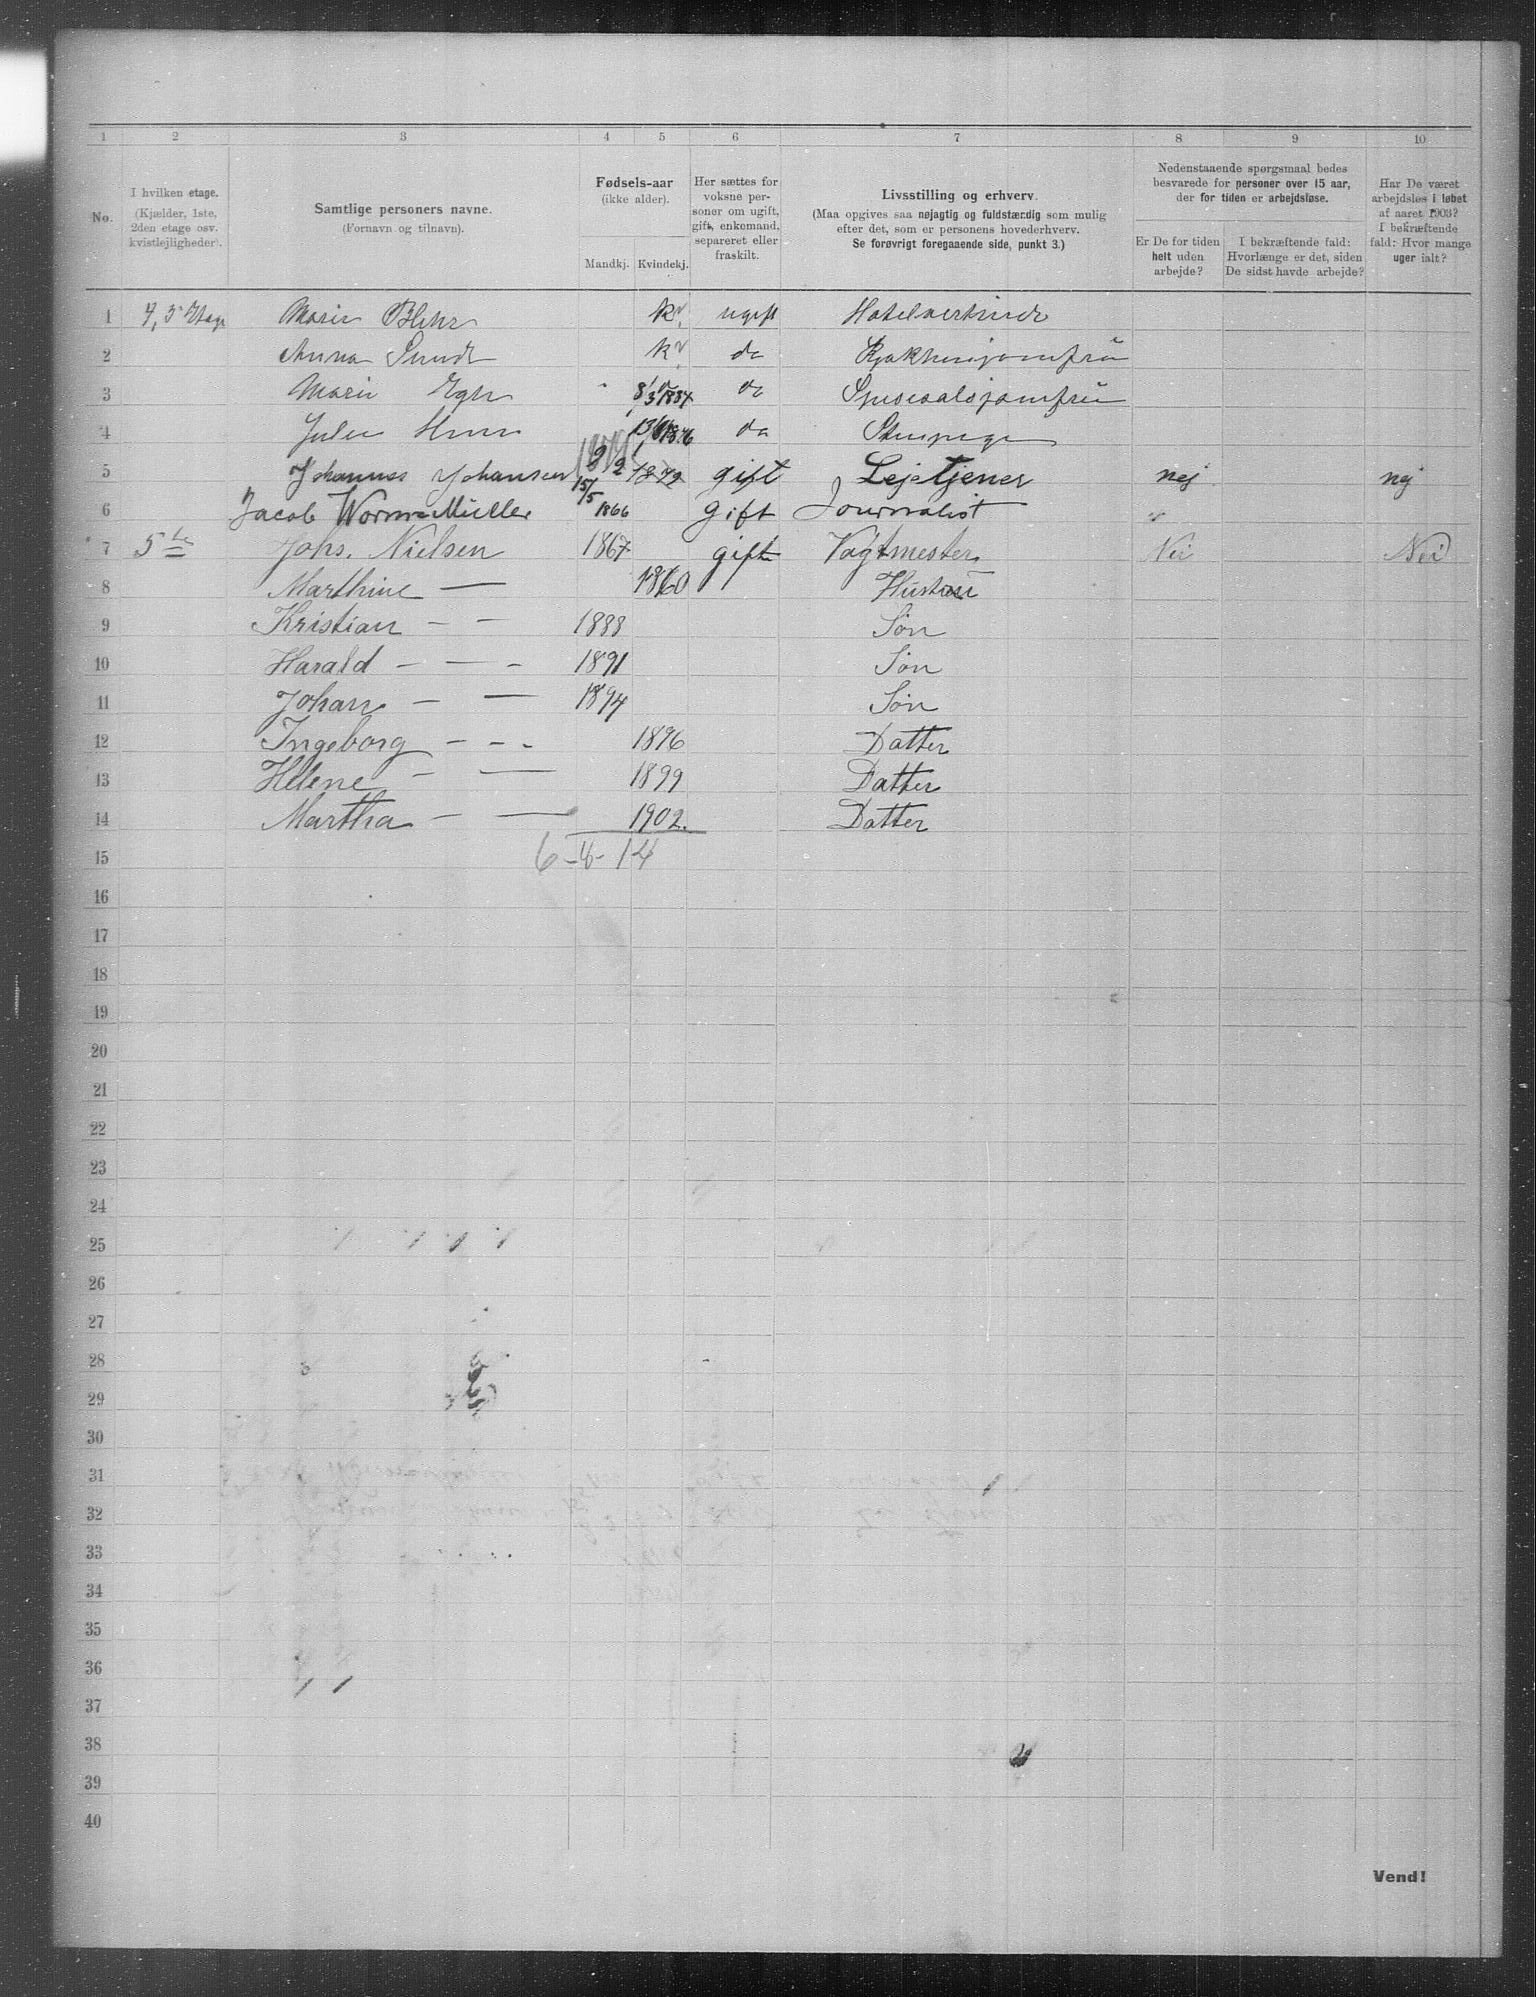 1 2 3 4 5 6 7 8 9 10
No.
I hvilken etage.
(Kjælder, 1ste,
2den etage osv.
kvistlejligheder).
Samtlige personers navne.
(Fornavn og tilnavn).
Fødsels-aar
(ikke alder).
Mandkj. Kvindekj.
Her sættes for
voksne per-
soner om ugift,
gift, enkemand,
separeret eller
fraskilt.
Livsstilling og erhverv.
(Maa opgives saa nøjagtig og fuldstændig som mulig
efter det, som er personens hovederhverv.
Se forøvrigt foregaaende side, punkt 3.)
Nedenstaaende spørgsmaal bedes
besvarede for personer over 15 aar,
der for tiden er arbejdsløse.
Er De for tiden
helt uden
arbejde?
I bekræftende fald:
Hvorlænge er det, siden
De sidst havde arbejde?
Har De været
arbejdsløs i løbet
af aaret 1903?
I bekræftende
fald: Hvor mange
uger ialt?
1 4, 5 Etage Marie ugift
2 Anna Sundt do
3 Marie do
4 do
5 Johannes Johansen 1872 gift Lejetjener nej nej
6 Jacob Worm-Müller 15/5 1866 gift Journalist
7 5te Johs. Nielsen 1867 gift Vagtmester Nei Nei
8 Marthine — 1860 Hustru
9 Kristian — — 1888 Søn
10 Harald — — - 1891 Søn
11 Johan — — 1894 Søn
12 Ingeborg - - - 1896 Datter
13 Helene - — 1899 Datter
14 Martha - — 1902. Datter
15 6-8-14
16
17
18
19
20
21
22
23
24
25
26
27
28
29
30
31
32
33
34
35
36
37
38
39
40
Vend!